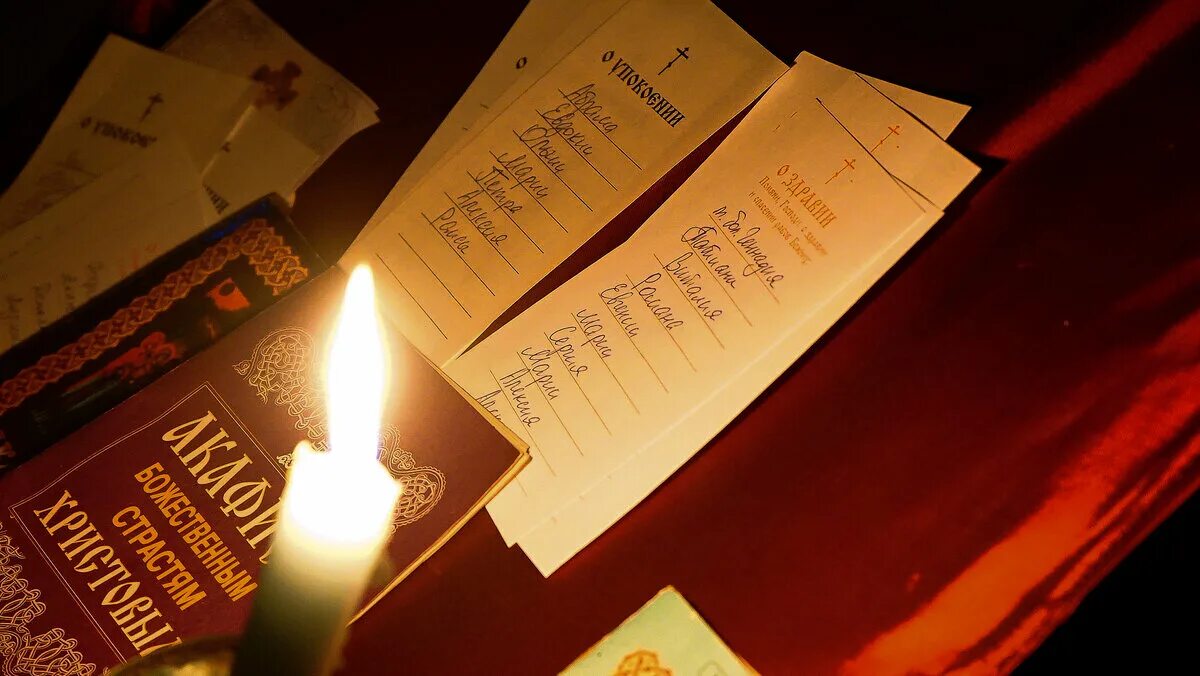 О УПОКОЕНИИ
Абрама
Евдокии
Ирины
Марии
Петра
Алексия
Раиса
О ЗДРАВИИ
Помяни, Господи, о здравии
и спасении рабов Божиих
т. бол. Геннадия
Татиана
Виталия
Романа
Евгении
Марии
Сергия
Марии
Алексия
О УПОКОЕ
АКАФИ
БОЖЕСТВЕННЫМ
СТРАСТЯМ
ХРИСТОВЫ